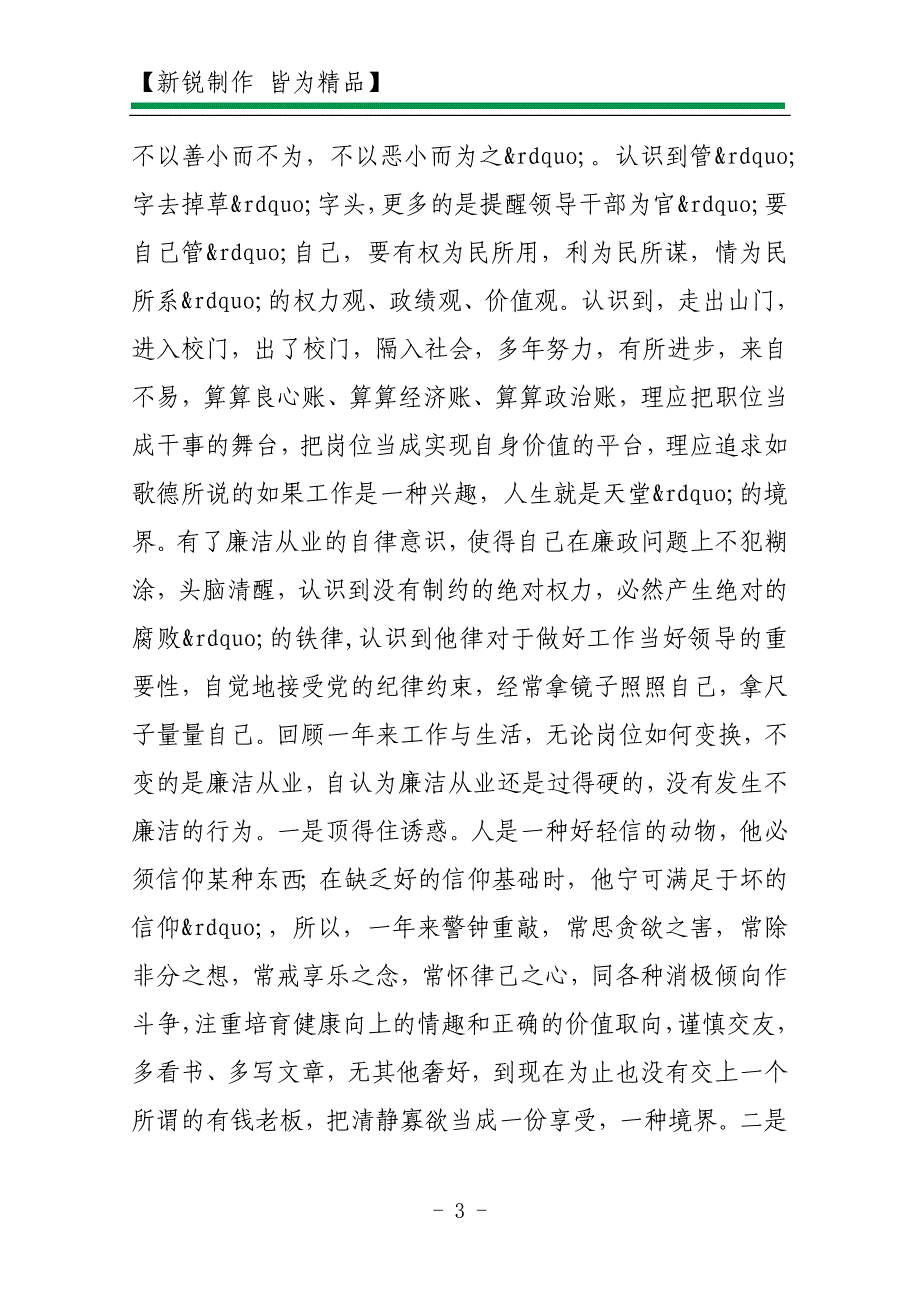 【新锐制作 皆为精品】
不以善小而不为，不以恶小而为之&rdquo;。认识到管&rdquo;
字去掉草&rdquo;字头，更多的是提醒领导干部为官&rdquo;要
自己管&rdquo;自己，要有权为民所用，利为民所谋，情为民
所系&rdquo;的权力观、政绩观、价值观。认识到，走出山门，
进入校门，出了校门，隔入社会，多年努力，有所进步，来自
不易，算算良心账、算算经济账、算算政治账，理应把职位当
成干事的舞台，把岗位当成实现自身价值的平台，理应追求如
歌德所说的如果工作是一种兴趣，人生就是天堂&rdquo;的境
界。有了廉洁从业的自律意识，使得自己在廉政问题上不犯糊
涂，头脑清醒，认识到没有制约的绝对权力，必然产生绝对的
腐败&rdquo;的铁律，认识到他律对于做好工作当好领导的重
要性，自觉地接受党的纪律约束，经常拿镜子照照自己，拿尺
子量量自己。回顾一年来工作与生活，无论岗位如何变换，不
变的是廉洁从业，自认为廉洁从业还是过得硬的，没有发生不
廉洁的行为。一是顶得住诱惑。人是一种好轻信的动物，他必
须信仰某种东西；在缺乏好的信仰基础时，他宁可满足于坏的
信仰&rdquo;，所以，一年来警钟重敲，常思贪欲之害，常除
非分之想，常戒享乐之念，常怀律己之心，同各种消极倾向作
斗争，注重培育健康向上的情趣和正确的价值取向，谨慎交友，
多看书、多写文章，无其他奢好，到现在为止也没有交上一个
所谓的有钱老板，把清静寡欲当成一份享受，一种境界。二是
- 3 -